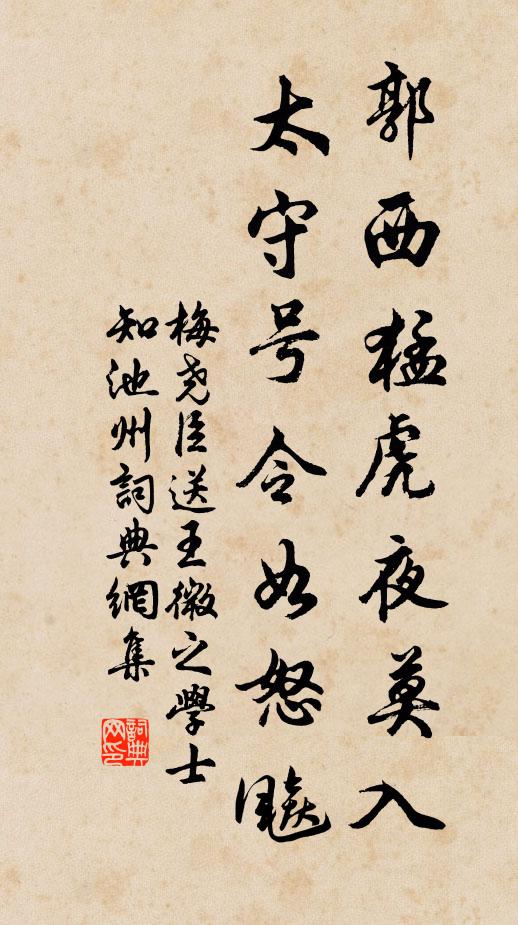 郭西猛虎夜莫入
太守号令如怒飈
梅尧臣送王微之學士
知池州詞典網集
詞典网印